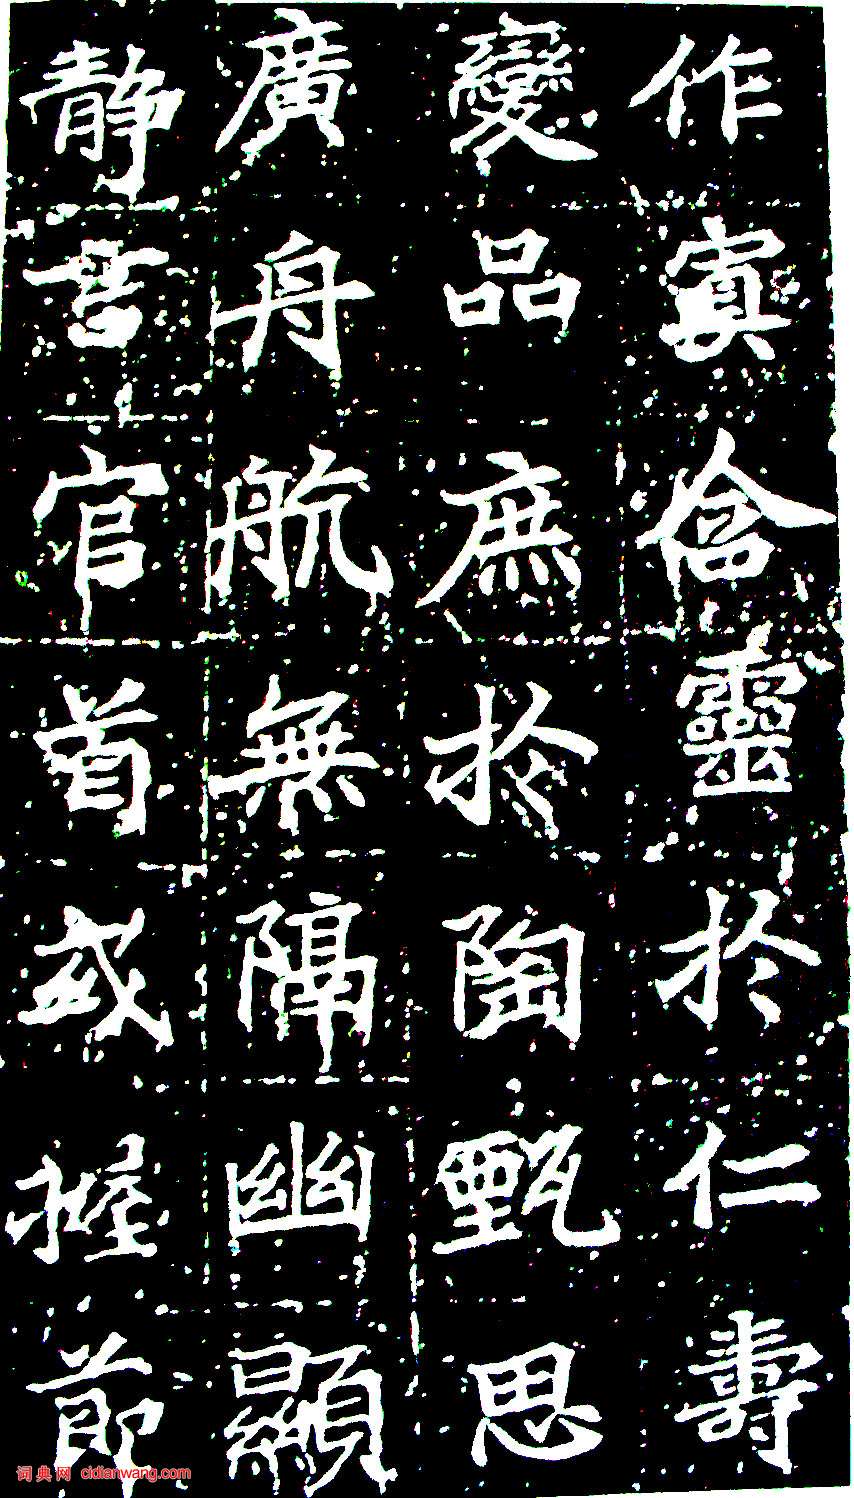 作寘含靈於仁壽
變品庶於陶甄思
廣舟航無隔幽顯
静言官首或握節
词典网 cidianwang.com